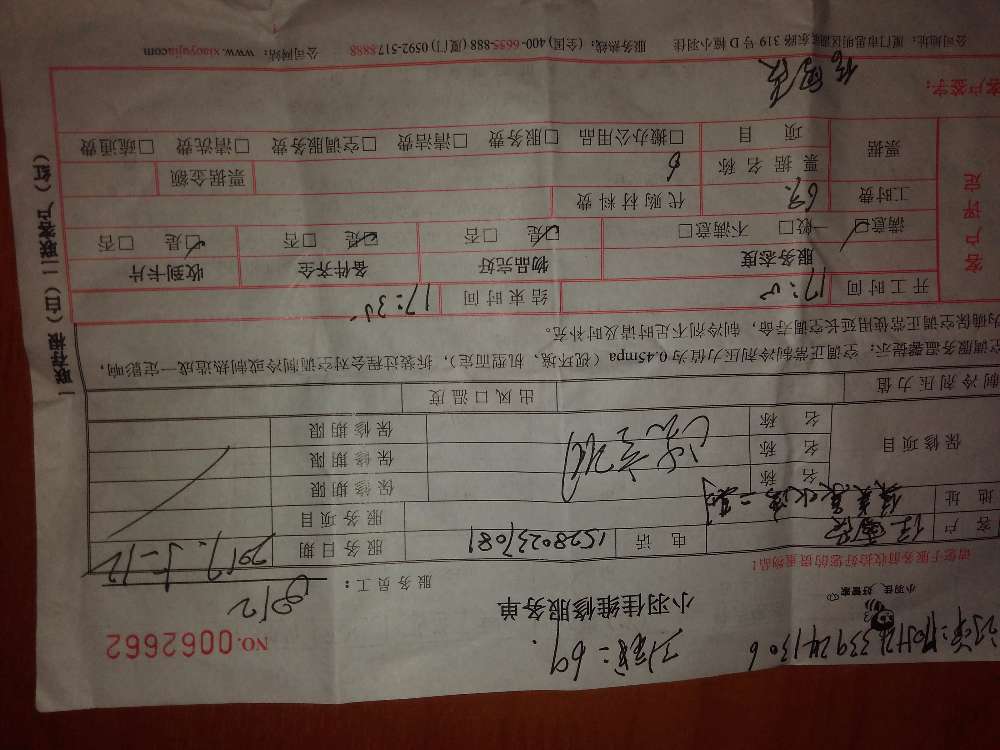 小羽佳 好管家
小羽佳维修服务单
NO.0062662
请您于服务前收拾好您的贵重物品！
服务员工：
客户 电话 15280237081 服务日期 2017.5-12
地址 服务项目
保修项目 名称 保修期限
名称 保修期限
名称 保修期限
制冷剂压力值 出风口温度
空调服务温馨提示：空调正常制冷剂压力值为0.45mpa（视环境，机型而定），拆装过程会对空调制冷或制热造成一定影响，
为确保空调正常使用延长空调寿命，制冷剂不足时请及时补充。
开工时间 17:00 结束时间 17:30
客户评定
服务态度 物品完好 备件齐全 收到卡片
满意☑ 一般□ 不满意□ ☑是 □否 ☑是 □否 ☑是 □否
工时费 69. 代购材料费
票据 票据名称 票据金额
项目 □搬办公用品 □服务费 □清洁费 □空调服务费 □清洗费 □疏通费
客户签字：
公司地址：厦门市思明区湖滨东路319号D幢小羽佳 服务热线：(全国)400-6655-888 (厦门)0592-5178888 公司网站：www.xiaoyujia.com
一联存根（白）二联客户（红）